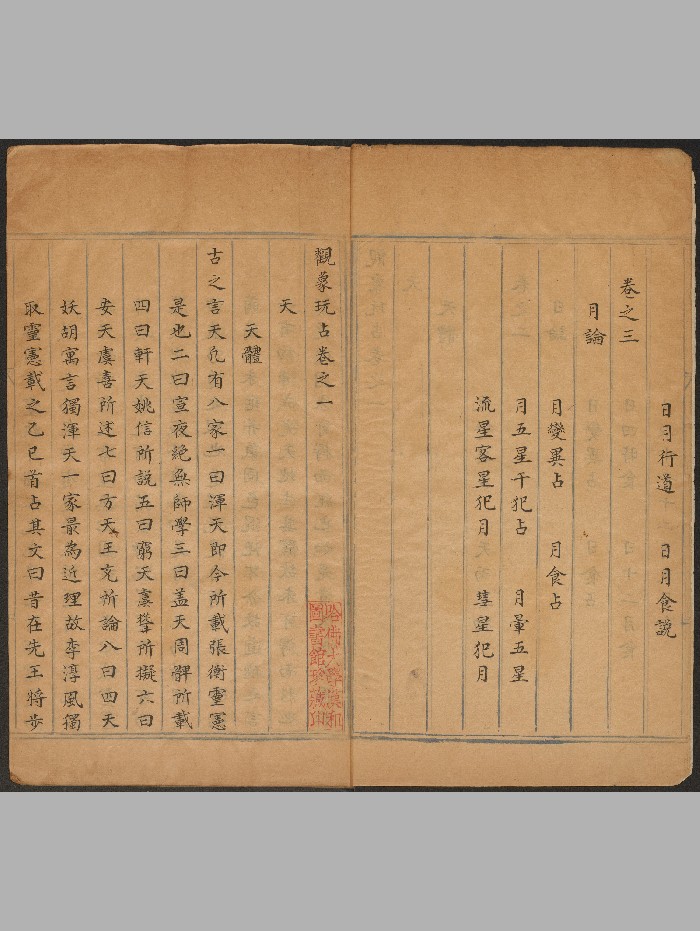 日月行道　日月食說
卷之三
月論
月變異占　月食占
月五星干犯占　月暈五星
流星客星犯月　彗星犯月
觀象玩占卷之一
天
天體
古之言天凢有八家一曰渾天即今所載張衡靈憲
是也二曰宣夜絶無師學三曰盖天周髀所載
四曰軒天姚信所説五曰窮天虞聳所擬六曰
安天虞喜所述七曰方天王充所論八曰四天
妖胡寓言獨渾天一家最為近理故李淳風獨
取靈憲載之乙巳首占其文曰昔在先王將步
哈佛大學漢和
圖書館珍藏印